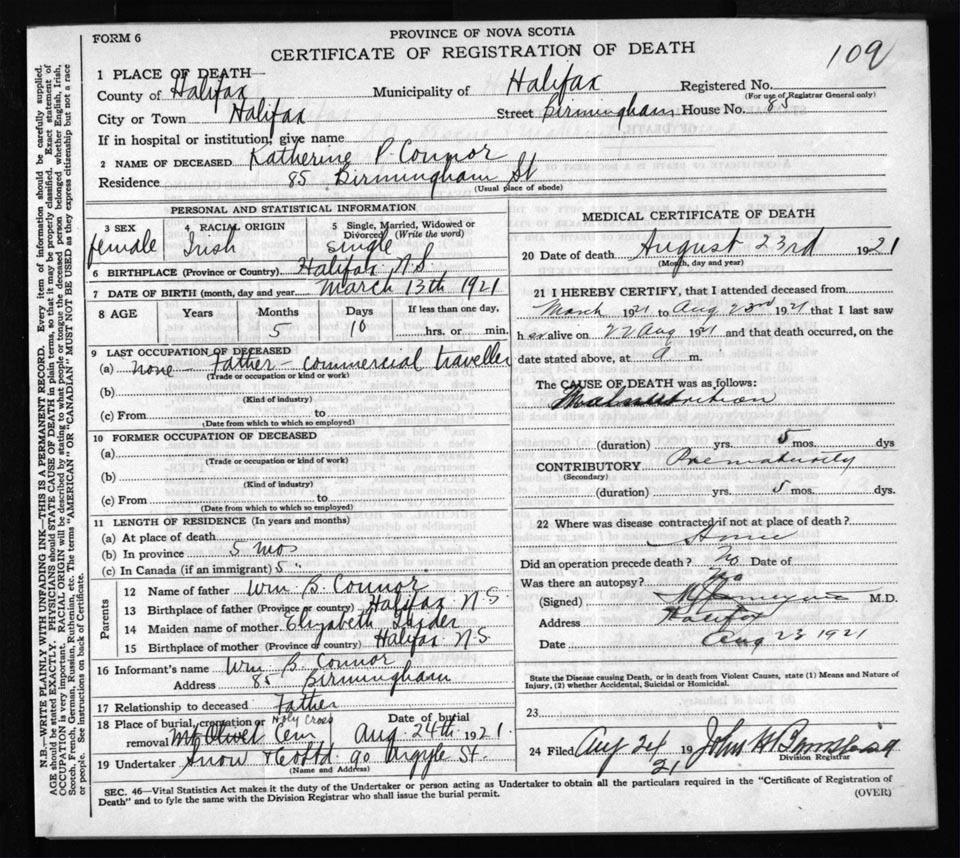 FORM 6
PROVINCE OF NOVA SCOTIA
CERTIFICATE OF REGISTRATION OF DEATH
109
1 PLACE OF DEATH—
County of Halifax Municipality of Halifax Registered No.
(For use of Registrar General only)
City or Town Halifax Street Birmingham House No. 85
If in hospital or institution, give name
2 NAME OF DECEASED Katherine P. Connor
Residence 85 Birmingham St
(Usual place of abode)
PERSONAL AND STATISTICAL INFORMATION
3 SEX 4 RACIAL ORIGIN 5 Single, Married, Widowed or Divorced (Write the word)
female Irish single
6 BIRTHPLACE (Province or Country) Halifax N.S
7 DATE OF BIRTH (month, day and year) March 13th 1921
8 AGE Years Months Days If less than one day,
5 10 hrs. or min.
9 LAST OCCUPATION OF DECEASED
(a) none - Father - commercial traveller
(Trade or occupation or kind of work)
(b)
(Kind of industry)
(c) From to
(Date from which to which so employed)
10 FORMER OCCUPATION OF DECEASED
(a)
(Trade or occupation or kind of work)
(b)
(Kind of industry)
(c) From to
(Date from which to which so employed)
11 LENGTH OF RESIDENCE (In years and months)
(a) At place of death
(b) In province 5 mos
(c) In Canada (if an immigrant) 5 "
Parents
12 Name of father Wm B. Connor
13 Birthplace of father (Province or country) Halifax N.S.
14 Maiden name of mother Elizabeth
15 Birthplace of mother (Province or country) Halifax N S
16 Informant's name Wm B. Connor
Address 85 Birmingham
17 Relationship to deceased Father
18 Place of burial, cremation or Holy Cross Date of burial
removal Mt Olivet Cem Aug. 24th 1921.
19 Undertaker Snow & Co Ltd 90 Argyle St.
(Name and Address)
MEDICAL CERTIFICATE OF DEATH
20 Date of death August 23rd 1921
(Month, day and year)
21 I HEREBY CERTIFY, that I attended deceased from
March 1921 to Aug 23rd 1921 that I last saw
her alive on 22 Aug 1921 and that death occurred, on the
date stated above, at a m.
The CAUSE OF DEATH was as follows:
Malnutrition
(duration) yrs. 5 mos. dys
CONTRIBUTORY Prematurely
(Secondary)
(duration) yrs. 5 mos. dys.
22 Where was disease contracted if not at place of death?
Did an operation precede death? No Date of
Was there an autopsy? No
(Signed) M.D.
Address Halifax
Date Aug 23 1921
State the Disease causing Death, or in death from Violent Causes, state (1) Means and Nature of
Injury, (2) whether Accidental, Suicidal or Homicidal.
23
24 Filed Aug 24 1921 John
Division Registrar
SEC. 46—Vital Statistics Act makes it the duty of the Undertaker or person acting as Undertaker to obtain all the particulars required in the "Certificate of Registration of
Death" and to fyle the same with the Division Registrar who shall issue the burial permit.
(OVER)
N.B.—WRITE PLAINLY WITH UNFADING INK—THIS IS A PERMANENT RECORD. Every item of information should be carefully supplied.
AGE should be stated EXACTLY. PHYSICIANS should STATE CAUSE OF DEATH in plain terms, so that it may be properly classified. Exact statement of
OCCUPATION is very important. RACIAL ORIGIN will be described by stating to what people or tongue the deceased person belonged whether English, Irish,
Scotch, French, German, Russian, Ruthenian, etc. The terms "AMERICAN" OR "CANADIAN" MUST NOT BE USED as they express citizenship but not a race
or people. See instructions on back of Certificate.